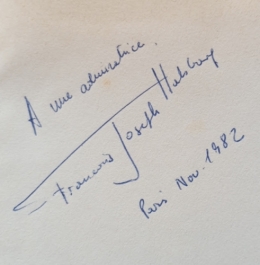 A une admiratrice.
François Joseph
Paris Nov. 1982